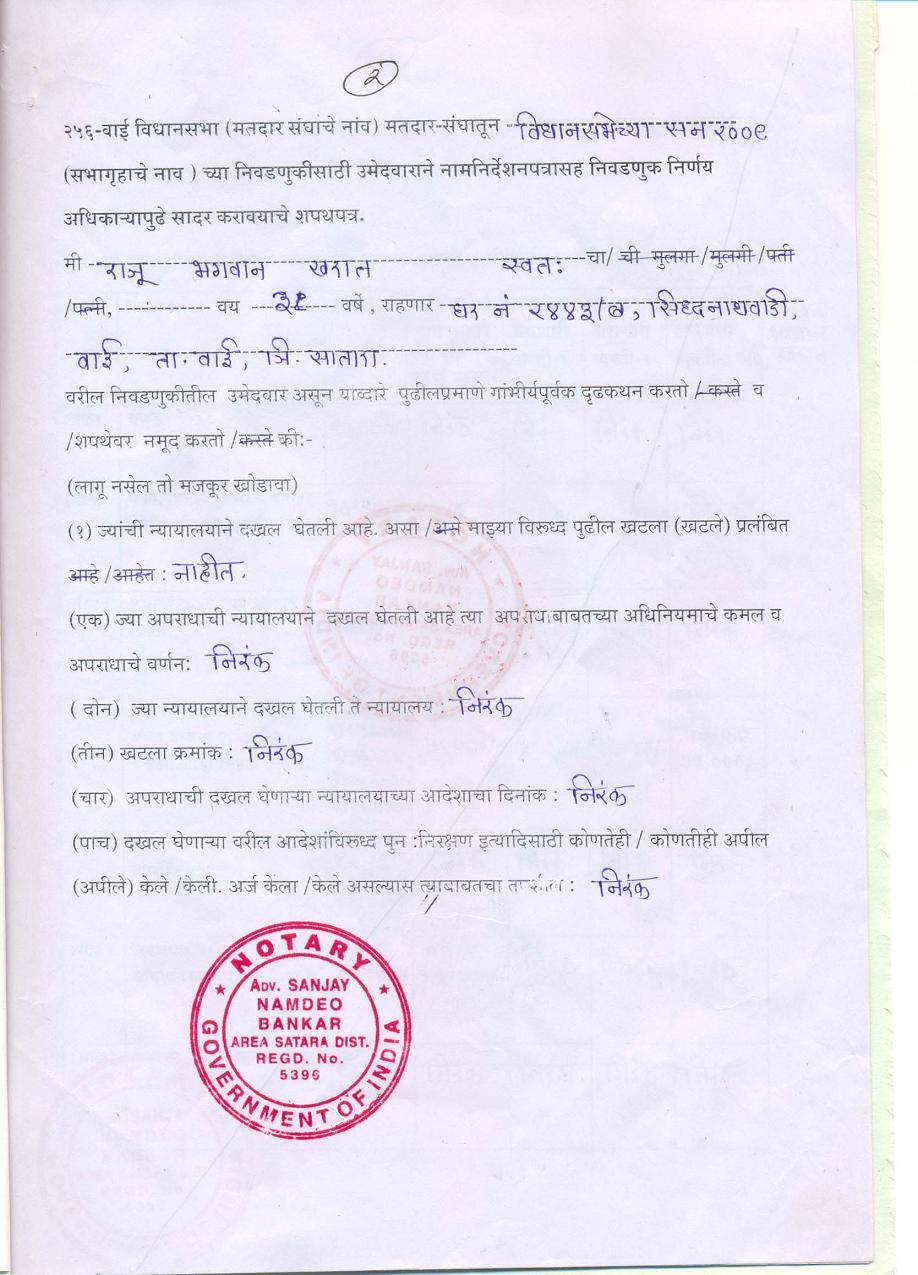 २
२५६-वाई विधानसभा (मतदार संघाचे नांव) मतदार-संघातून विधानसभेच्या सन २००९
(सभागृहाचे नाव ) च्या निवडणुकीसाठी उमेदवाराने नामनिर्देशनपत्रासह निवडणुक निर्णय
अधिकाऱ्यापुढे सादर करावयाचे शपथपत्र.
मी राजू भगवान खरात स्वतः चा/ ची मुलगा /मुलगी /पती
/पत्नी, ------------ वय वर्षे , राहणार घर नं २४४३/ब, सिध्दनाथवाडी,
वाई, ता. वाई, जि. सातारा.
वरील निवडणुकीतील उमेदवार असून याव्दारे पुढीलप्रमाणे गांभीर्यपूर्वक दृढकथन करतो /कस्ते व
/शपथेवर नमूद करतो /कस्ते की:-
(लागू नसेल तो मजकूर खोडावा)
(१) ज्यांची न्यायालयाने दखल घेतली आहे. असा /असे माझ्या विरूध्द पुढील खटला (खटले) प्रलंबित
आहे /आहेत : नाहीत.
(एक) ज्या अपराधाची न्यायालयाने दखल घेतली आहे त्या अपराधाबाबतच्या अधिनियमाचे कमल व
अपराधाचे वर्णन: निरंक
( दोन) ज्या न्यायालयाने दखल घेतली ते न्यायालय : निरंक
(तीन) खटला क्रमांक : निरंक
(चार) अपराधाची दखल घेणाऱ्या न्यायालयाच्या आदेशाचा दिनांक : निरंक
(पाच) दखल घेणाऱ्या वरील आदेशांविरूध्द पुन :निरक्षण इत्यादिसाठी कोणतेही / कोणतीही अपील
(अपीले) केले /केली. अर्ज केला /केले असल्यास त्याबाबतचा तपशील : निरंक
NOTARY
ADV. SANJAY
NAMDEO
BANKAR
AREA SATARA DIST.
REGD. No.
5396
GOVERNMENT OF INDIA